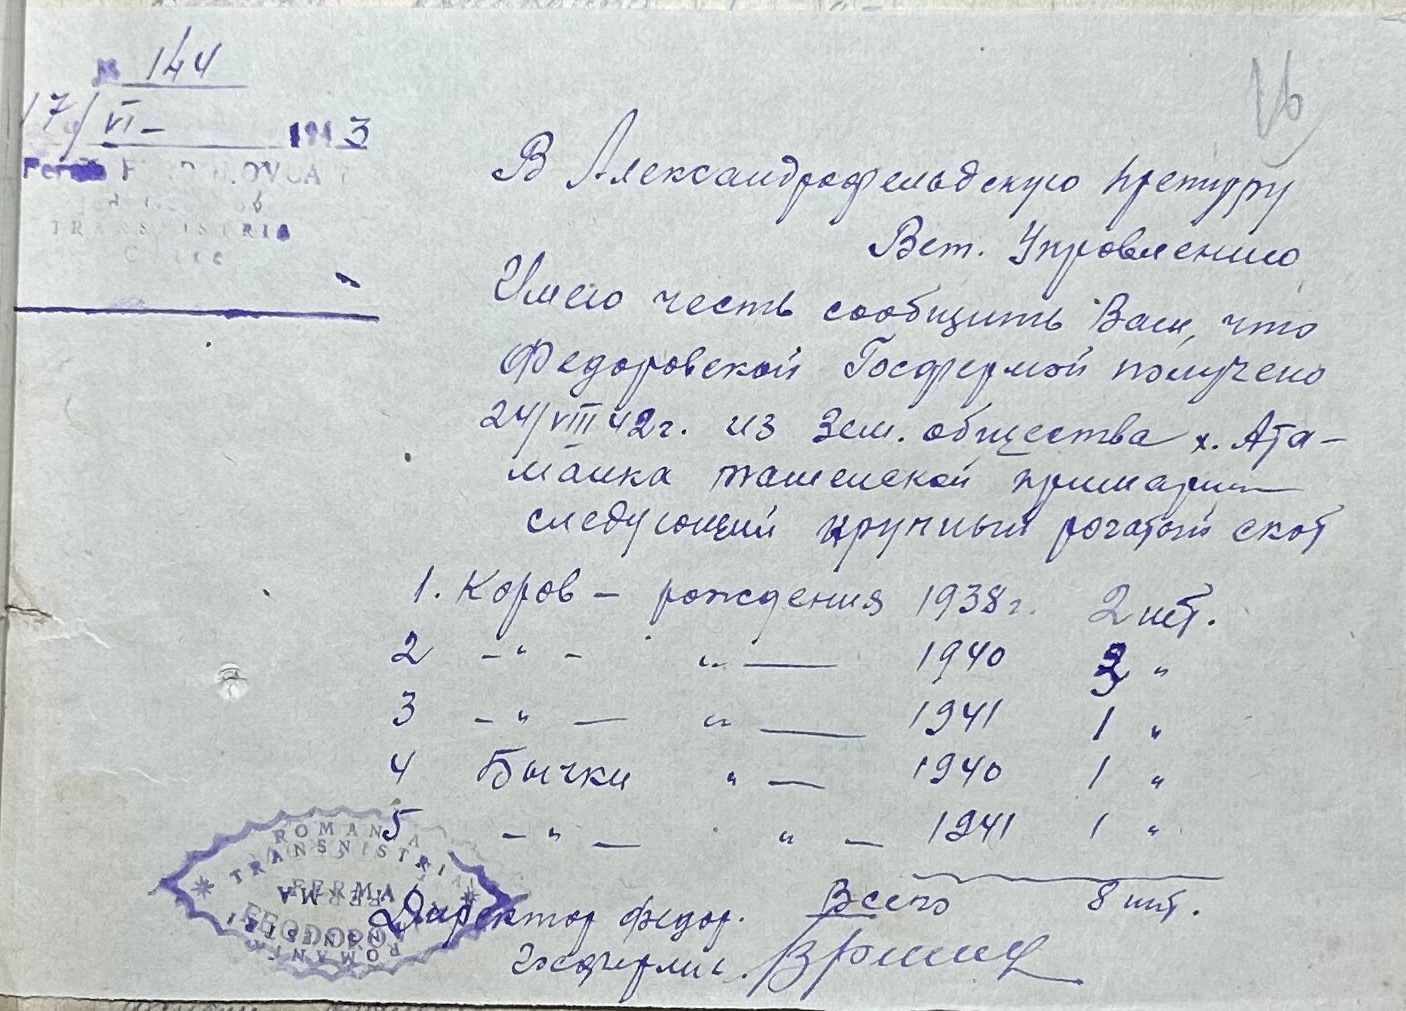 № 144
17/VI- 1943
TRANSNISTRIA
В Александрофельдскую претуру
Вет. Управлению
Имею честь сообщить Вам, что
Федоровской Госфермой получено
24/VIII 42г. из Зем. общества х. Ата-
манка ташенской примарии
следующий крупный рогатый скот
1. Коров – рождения 1938г. 2 шт.
2 -"- " — 1940 3 "
3 -"- " — 1941 1 "
4 Бычки " — 1940 1 "
5 -"- " — 1941 1 "
Всего 8 шт.
Директор Федор.
Госфермы
ROMANIA
TRANSNISTRIA
FERMA
FEODOROV